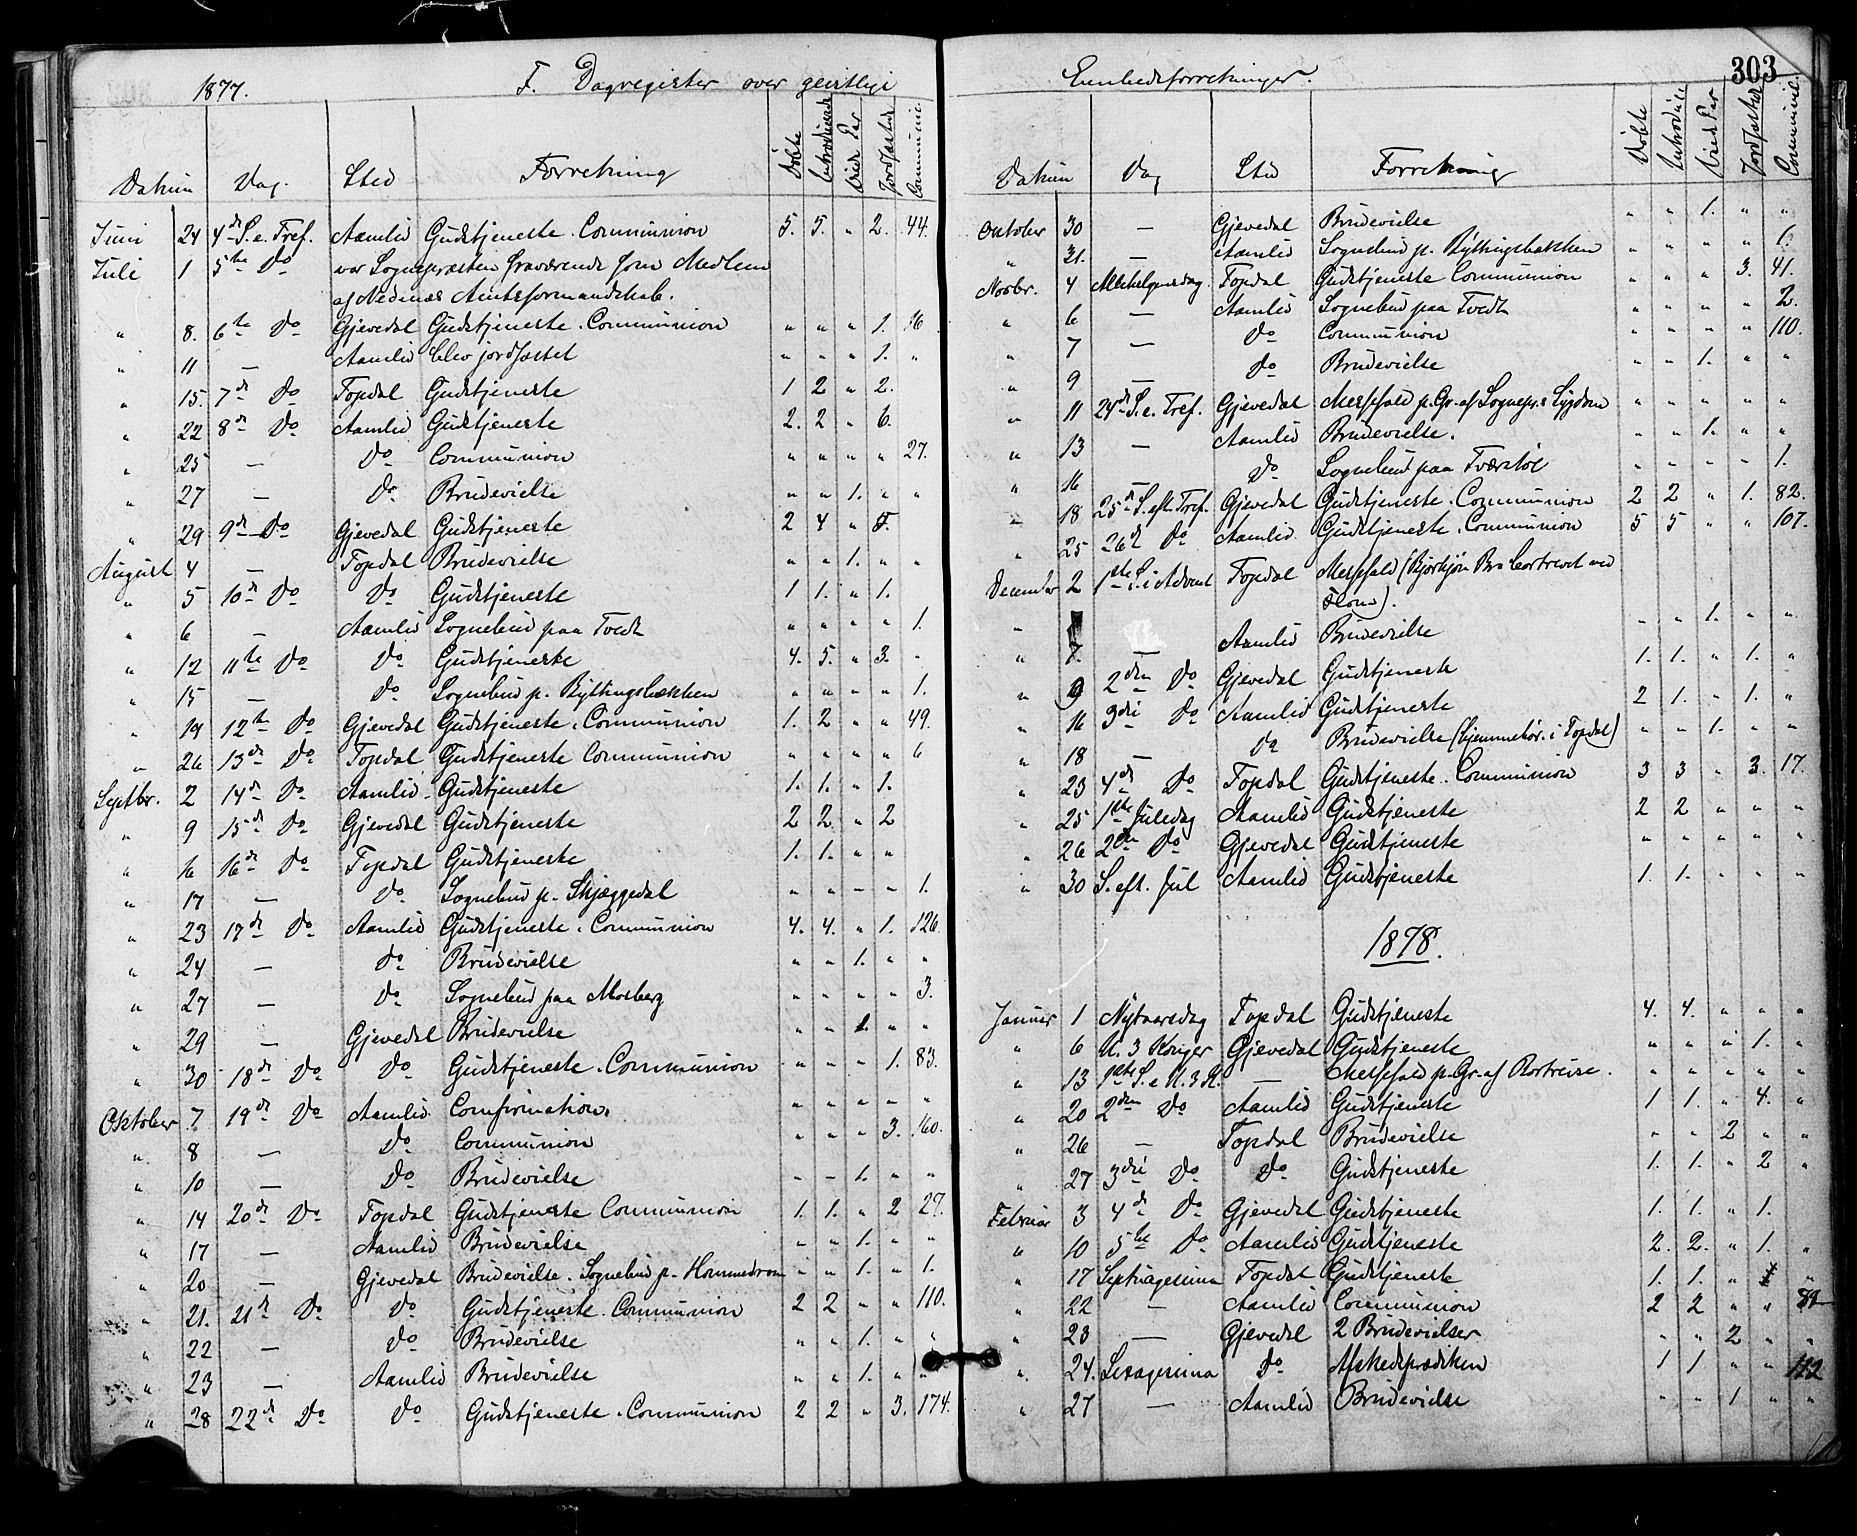 1877. F. Dagregister over geistlige
Datum Dag. Sted Forretning Døbte Introducerede Viede Par Jordfæstede Communic.
Juni 24 4de S. e. Tref. Aamlid Gudstjeneste. Communion 5. 5. " 2. 44.
Juli 1 5te Do var Sognepræsten fraværende som Medlem
af Nedenæs Amtsformandskab.
" 8. 6te Do Gjevedal Gudstjeneste. Communion " " " 1. 16
" 11 — Aamlid blev jordfæstet " " " 1. "
" 15. 7de Do Topdal Gudstjeneste 1 2 " 2.
" 22 8de Do Aamlid Gudstjeneste 2. 2 " 6.
" 25 — Do Communion " " " " 27.
" 27 — Do Brudevielse " " 1. " "
" 29 9de Do Gjevedal Gudstjeneste 2 4 " 5.
August 4 — Topdal Brudevielse " " 1. " "
" 5 10de Do Do Gudstjeneste 1 1. " 1.
" 6 — Aamlid Sognebud paa Tvedt " " " " 1.
" 12 11te Do Do Gudstjeneste 4. 5. " 3. "
" 15 — Do Sognebud p. Ryttingsbækken " " " " 1.
" 19 12te Do Gjevedal Gudstjeneste. Communion 1. 2 " " 49.
" 26 13de Do Topdal Gudstjeneste Communion " " " " 6
Septbr. 2 14de Do Aamlid Gudstjeneste 1. 1. " 1.
" 9 15de Do Gjevedal Gudstjeneste 2 2 " 2
" 16 16de Do Topdal Gudstjeneste 1. 1. " "
" 17 — Do Sognebud p. Skjæggedal " " " " 1.
" 23 17de Do Aamlid Gudstjeneste. Communion 4. 4. " 1. 126.
" 24 — Do Brudevielse " " 1. " "
" 27 — Do Sognebud paa Mosberg " " " " 3.
" 29 — Gjevedal Brudevielse " " 1. " "
" 30 18de Do Do Gudstjeneste. Communion " " " 1. 83.
Oktober 7 19de Do Aamlid Confirmation. " " " " "
" 8 — Do Communion " " " 3. 160.
" 10 — Do Brudevielse " " 1. " "
" 14 20de Do Topdal Gudstjeneste Communion 1. 1. " 2 27.
" 17 — Aamlid Brudevielse " " 1. " "
" 20 — Gjevedal Brudevielse. Sognebud p. Hommedrom " " 1. " 1.
" 21. 21de Do Do Gudstjeneste. Communion 2 2 " " 110.
" 22 — Do Brudevielse " " 1. " "
" 23 — Aamlid Brudevielse " " 1. " "
" 28 22de Do Do Gudstjeneste. Communion 2 2 " 3. 174.
Eenhedsforretninger. 303
Datum Dag Sted Forretning Døbte Introduc. Viede Par Jordfæstede Communic.
Oktober 30 — Gjevedal Brudevielse " " 1. " "
" 31. — Aamlid Sognebud p. Ryttingsbækken " " " " 1.
Novbr. 4 Allehelgensdag. Topdal Gudstjeneste Communion " " " 3. 41.
" 6 — Aamlid Sognebud paa Tvedt " " " " 2.
" 7 — Do Communion " " " " 110.
" 9 — Do Brudevielse " " 1. " "
" 11 24de S. e. Tref. Gjevedal Messefald p. Gr. af Sognepr.s Sygdom " " " " "
" 13 — Aamlid Brudevielse. " " 1. " "
" 16 — Do Sognebud paa Tværstøl " " " " 1.
" 18 25de S. eft. Tref. Gjevedal Gudstjeneste. Communion 2 2 " 1. 82.
" 25 26de Do Aamlid. Gudstjeneste. Communion 5 5 " " 107.
December 2 1ste S. i Advent Topdal Messefald (Bjorhjøn Bro bortrevet ved
Flom).
" 7. — Aamlid Brudevielse " " 1. " "
" 9 2den Do Gjevedal Gudstjeneste 1. 1. " 1. "
" 16 3die Do Aamlid Gudstjeneste 2 1. " 1. "
" 18 — Do Brudevielse (hjemmehør. i Topdal) " " 1. " "
" 23 4de Do Topdal Gudstjeneste. Communion 3 3 " 3. 17.
" 25 1ste Juledag Aamlid Gudstjeneste 2 2 " " "
" 26 2den Do Gjevedal Gudstjeneste " " " " "
" 30 S. eft. Jul Aamlid Gudstjeneste 1. 1. " " "
1878.
Januar 1 Nytaarsdag Topdal Gudstjeneste 4. 4. " " "
" 6 H. 3 Konger Gjevedal Gudstjeneste " " " 1. "
" 13 1ste S. e H. 3 K. — Messefald p. Gr. af Bortreise. " " " " "
" 20 2den Do Aamlid Gudstjeneste 1 1. " 4. "
" 26 — Topdal Brudevielse " " 2 " "
" 27 3die Do Do Gudstjeneste 1. 1. " 2 "
Februar 3 4de Do Gjevedal Gudstjeneste 1. 1. " 1.
" 10 5te Do Aamlid Gudstjeneste 2. 2. " 1. "
" 17 Septuagesima Topdal Gudstjeneste 1. 1. " "
" 22 — Aamlid Communion 2 2 " "
" 23 — Gjevedal 2 Brudevielser " " 2 " "
" 24. Sexagesima Do Afskedsprædiken 1 1 " " 112
" 27 — Aamlid Brudevielse " " 1 " "